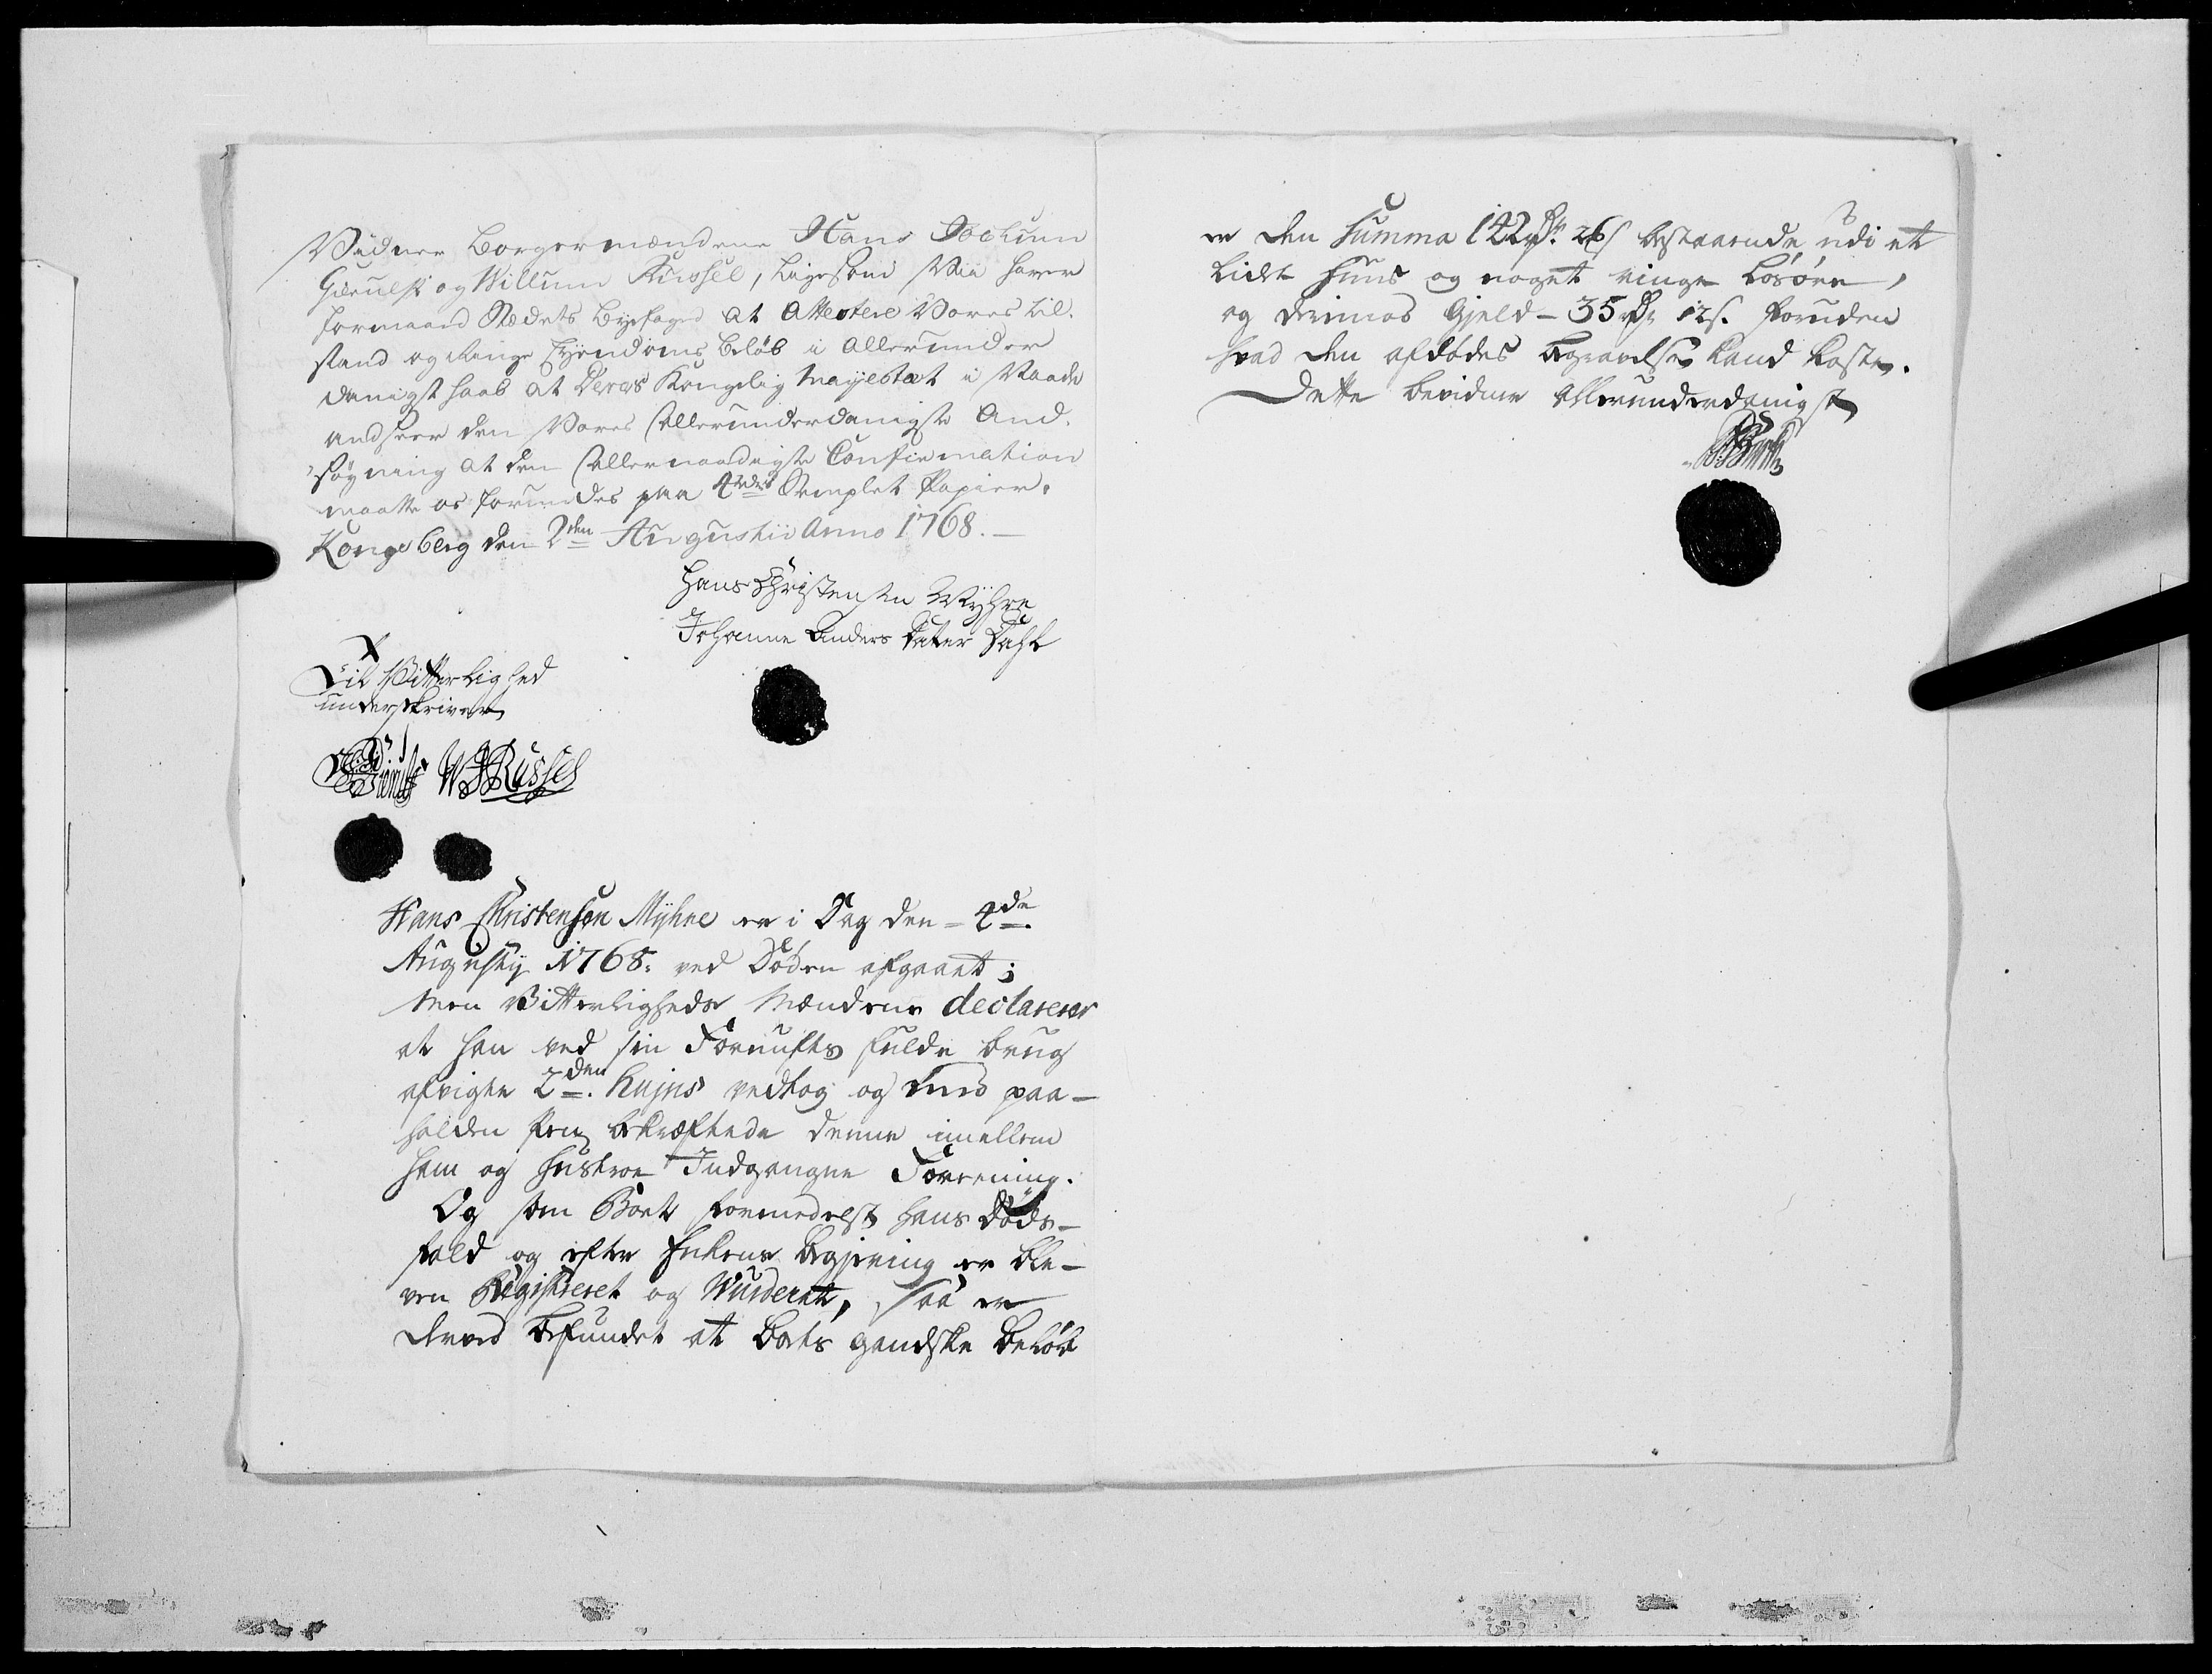 Vidner Borgermændene Hans Jochum
og Willum Russel, ligesom Vii haver
formaaed Stædets Byefoged at Attestere Vores til-
stand og ringe Eyendoms beløb i allerunder
danigst haab at Deres Kongelig Mayestæt i Naade
andseer den Vores allerunderdanigste And-
søgning at den allernaadigste Confirmation
maatte os forundes paa Stemplet Papier.
Kongsberg den 2den Augustii Anno 1768.
Hans Christensen Myhre
Johanne Anders Datter Dahl
Til Vitterlighed
underskriver
W Russel
Hans Christensen Myhre er i Dag den 4de
Augusty 1768. ved Døden afgaaet;
Men Vitterligheds Mændene declarerer
at han ved sin Fornufts fulde brug
afvigte 2den hujus vedtog og med paa-
holden Pen bekræftede denne imellem
ham og Hustroe Indgangne Foreening.
Og som Boet formedelst hans Døds-
fald og efter Enkens begjering er ble-
ven Registreret og Wurderet, saa er
derved befundet at boets gandske beløb
er den Summa 142 rdr. 26 s bestaaende udi et
lidet Huus og noget ringe løsøre,
og derimod Gjeld - 35 rdr 12 s. foruden
hvad den afdødes begravelse kand koste.
Dette bevidner allerunderdanigst